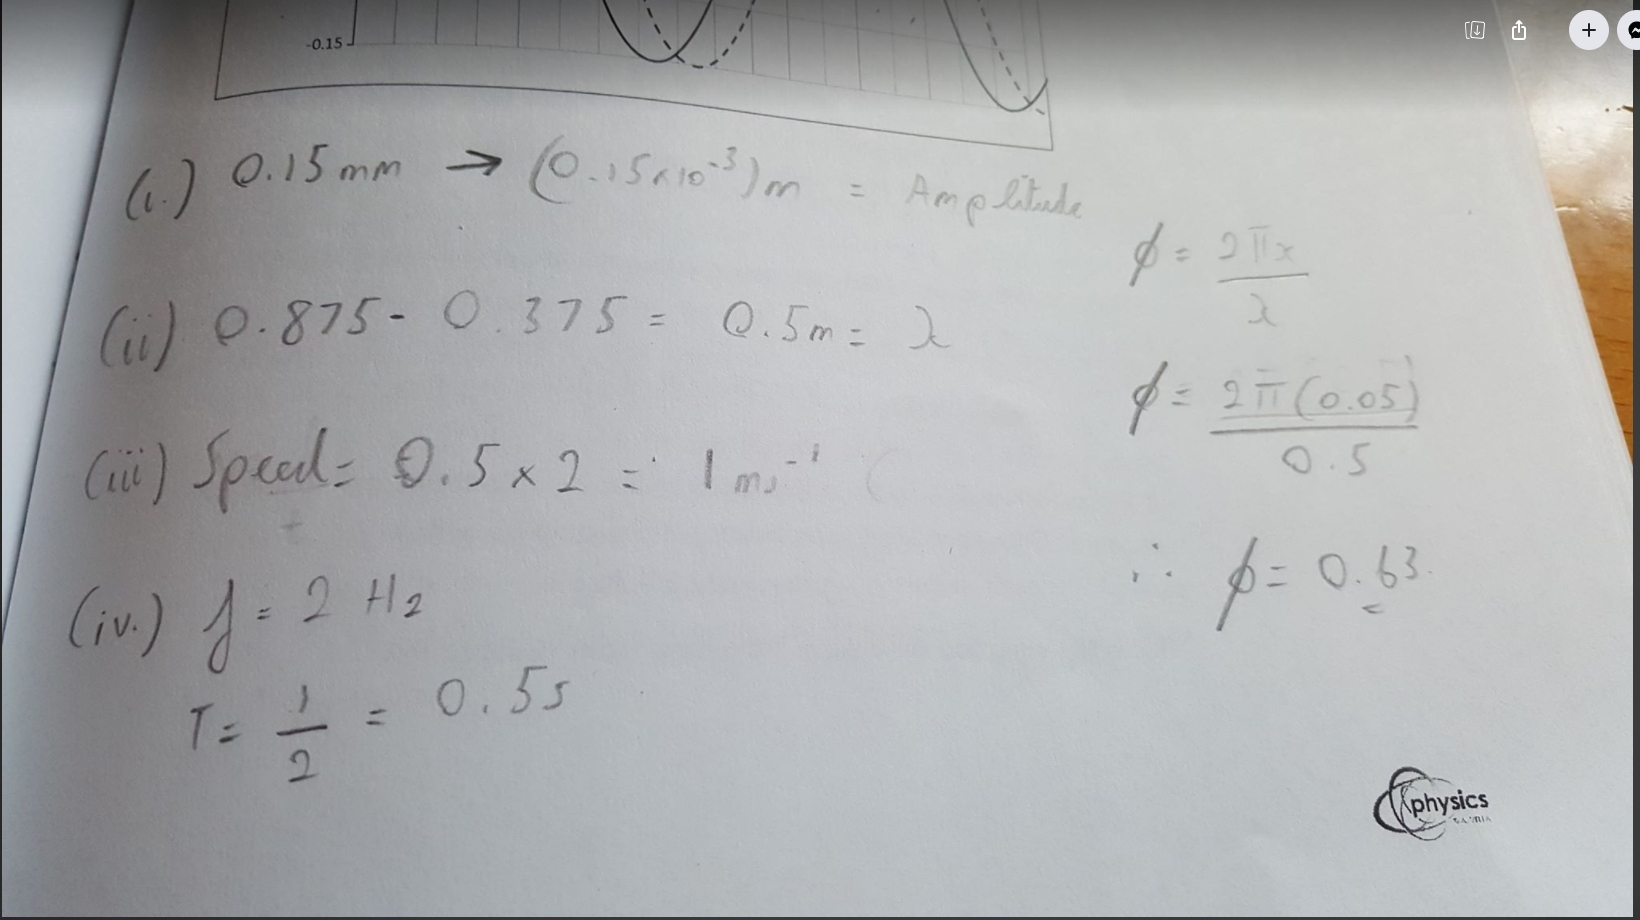 -0.15
(i.) 0.15 mm → (0.15×10⁻³)m = Amplitude
(ii) 0.875 - 0.375 = 0.5m = λ
(iii) Speed = 0.5 × 2 = 1 ms⁻¹ (
(iv.) f = 2 Hz
T = 1/2 = 0.5s
ϕ = 2πx/λ
ϕ = 2π(0.05)/0.5
∴ ϕ = 0.63
physics